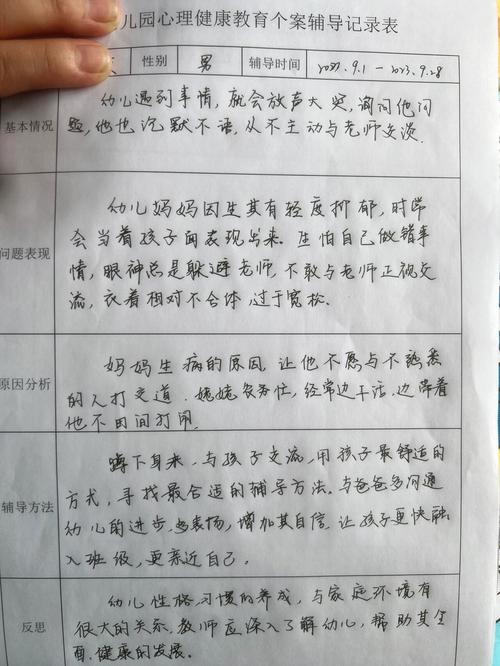 儿园心理健康教育个案辅导记录表
性别 男 辅导时间 2023.9.1 — 2023.9.28
基本情况
幼儿遇到事情，就会放声大哭，询问他问
题，他也沉默不语，从不主动与老师交谈.
问题表现
幼儿妈妈因生其有轻度抑郁，时常
会当着孩子面表现出来。生怕自己做错事
情，眼神总是躲避老师，不敢与老师正视交
流，衣着相对不合体，过于宽松.
原因分析
妈妈生病的原因，让他不愿与不熟悉
的人打交道.姥姥农务忙，经常边干活，边带着
他在田间打闹.
辅导方法
蹲下身来，与孩子交流，用孩子最舒适的
方式，寻找最合适的辅导方法。与爸爸多沟通
幼儿的进步，多表扬，增加其自信.让孩子更快融
入班级，更亲近自己.
反思
幼儿性格、习惯的养成，与家庭环境有
很大的关系.教师应深入了解幼儿，帮助其全
面、健康的发展.